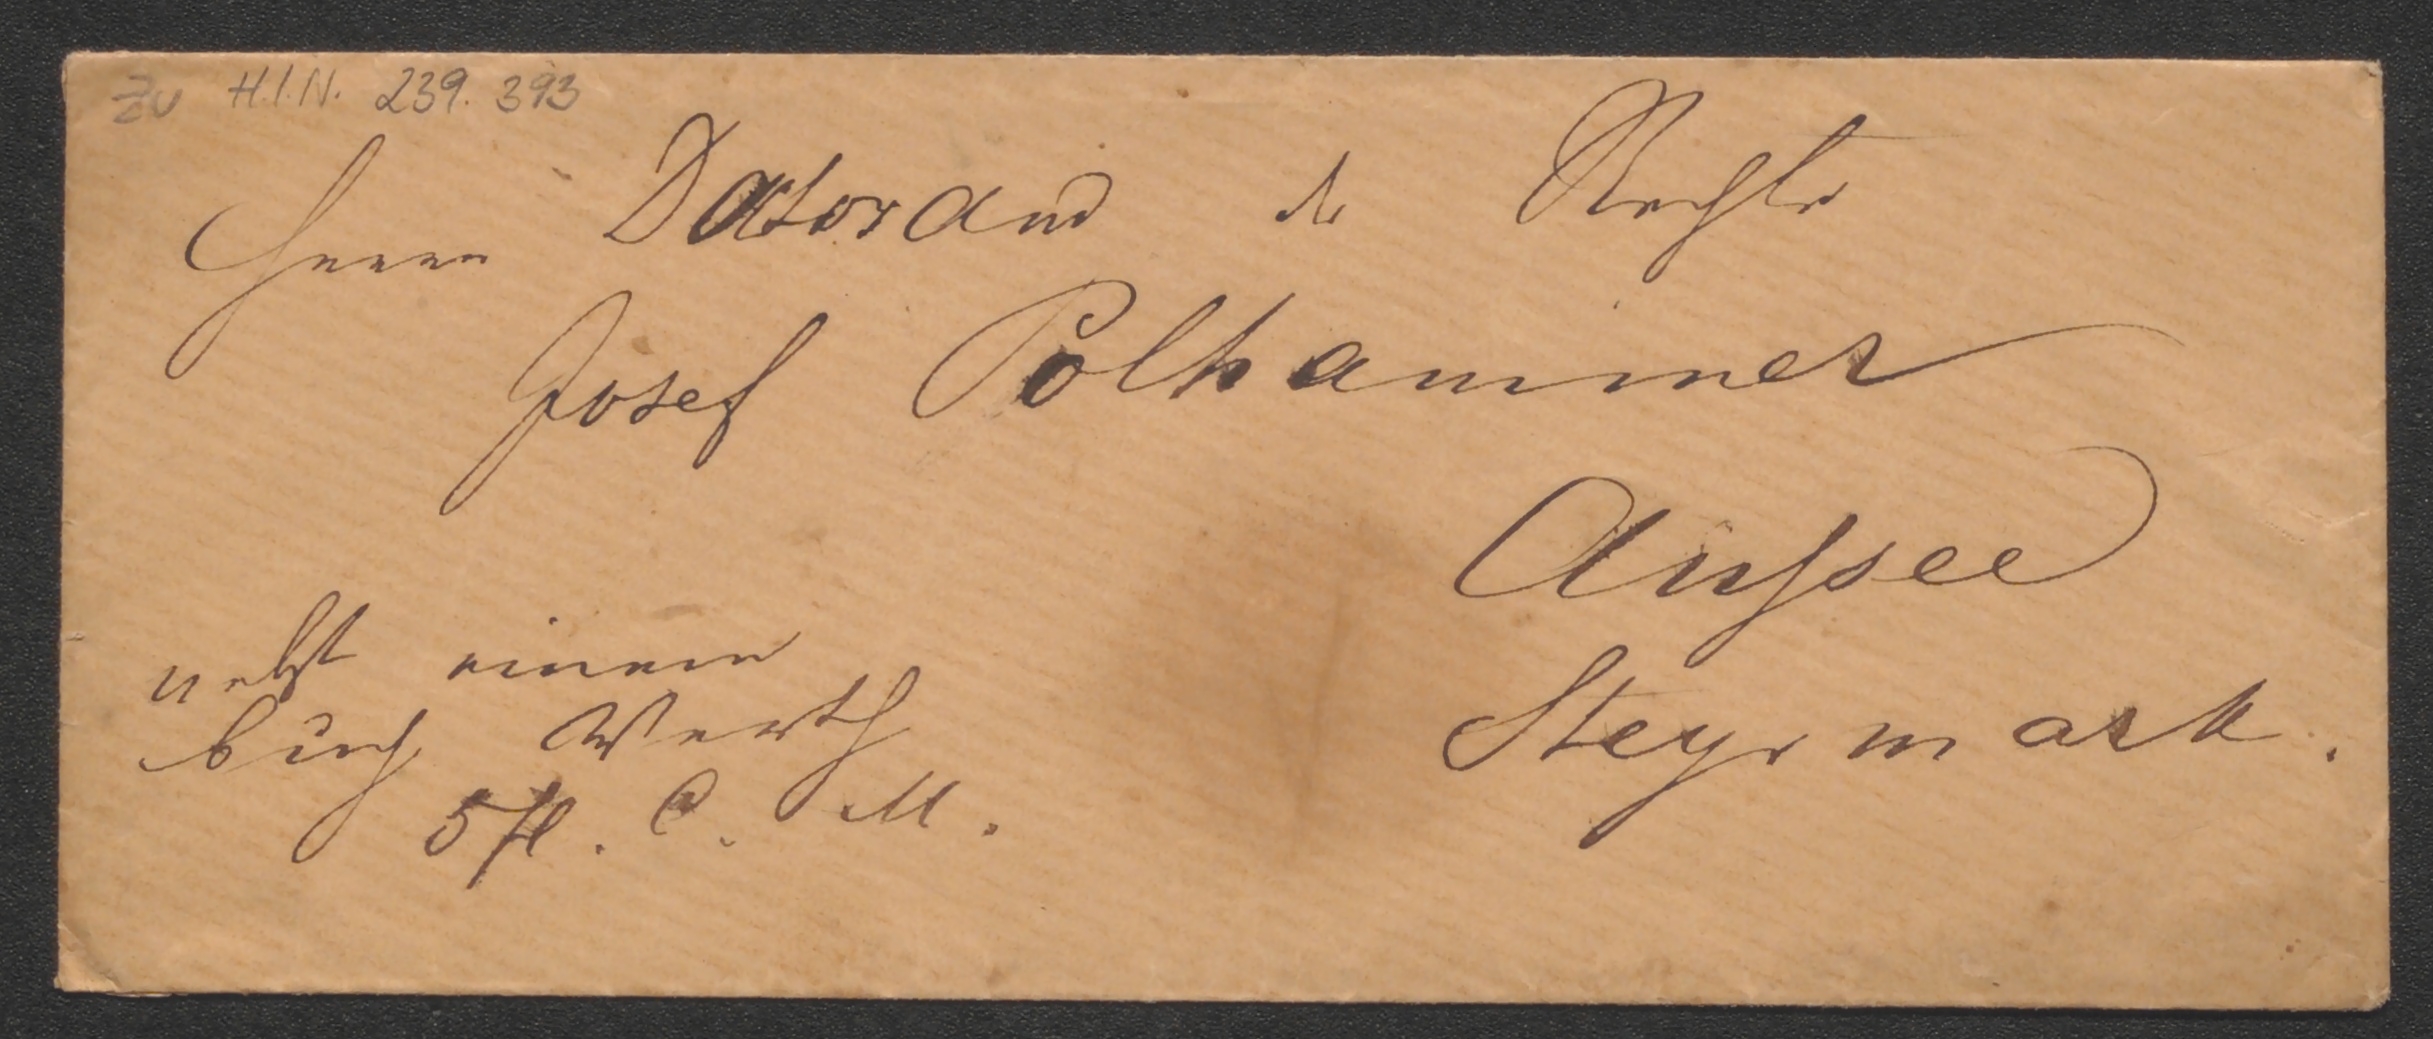 Zu H.I.N. 239.393
Herrn Doctorand der Rechte
Josef Polhammer
Aussee
Steyrmark.
nebst einem
buch Werth
5 fl. C. M.